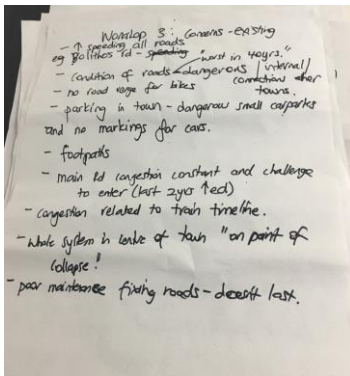 Workshop 3: Concerns - existing
- ↑ speeding all roads
eg Golithos rd - speeding "worst in 40yrs."
- condition of roads - dangerous / internal /
connections other towns.
- no road verge for bikes
- parking in town - dangerous small carparks
and no markings for cars.
- footpaths
- main Rd congestion constant and challenge
to enter (last 2yrs ↑ed)
- congestion related to train timeline.
- whole system in centre of town "on point of
collapse!"
- poor maintenance fixing roads - doesn't last.